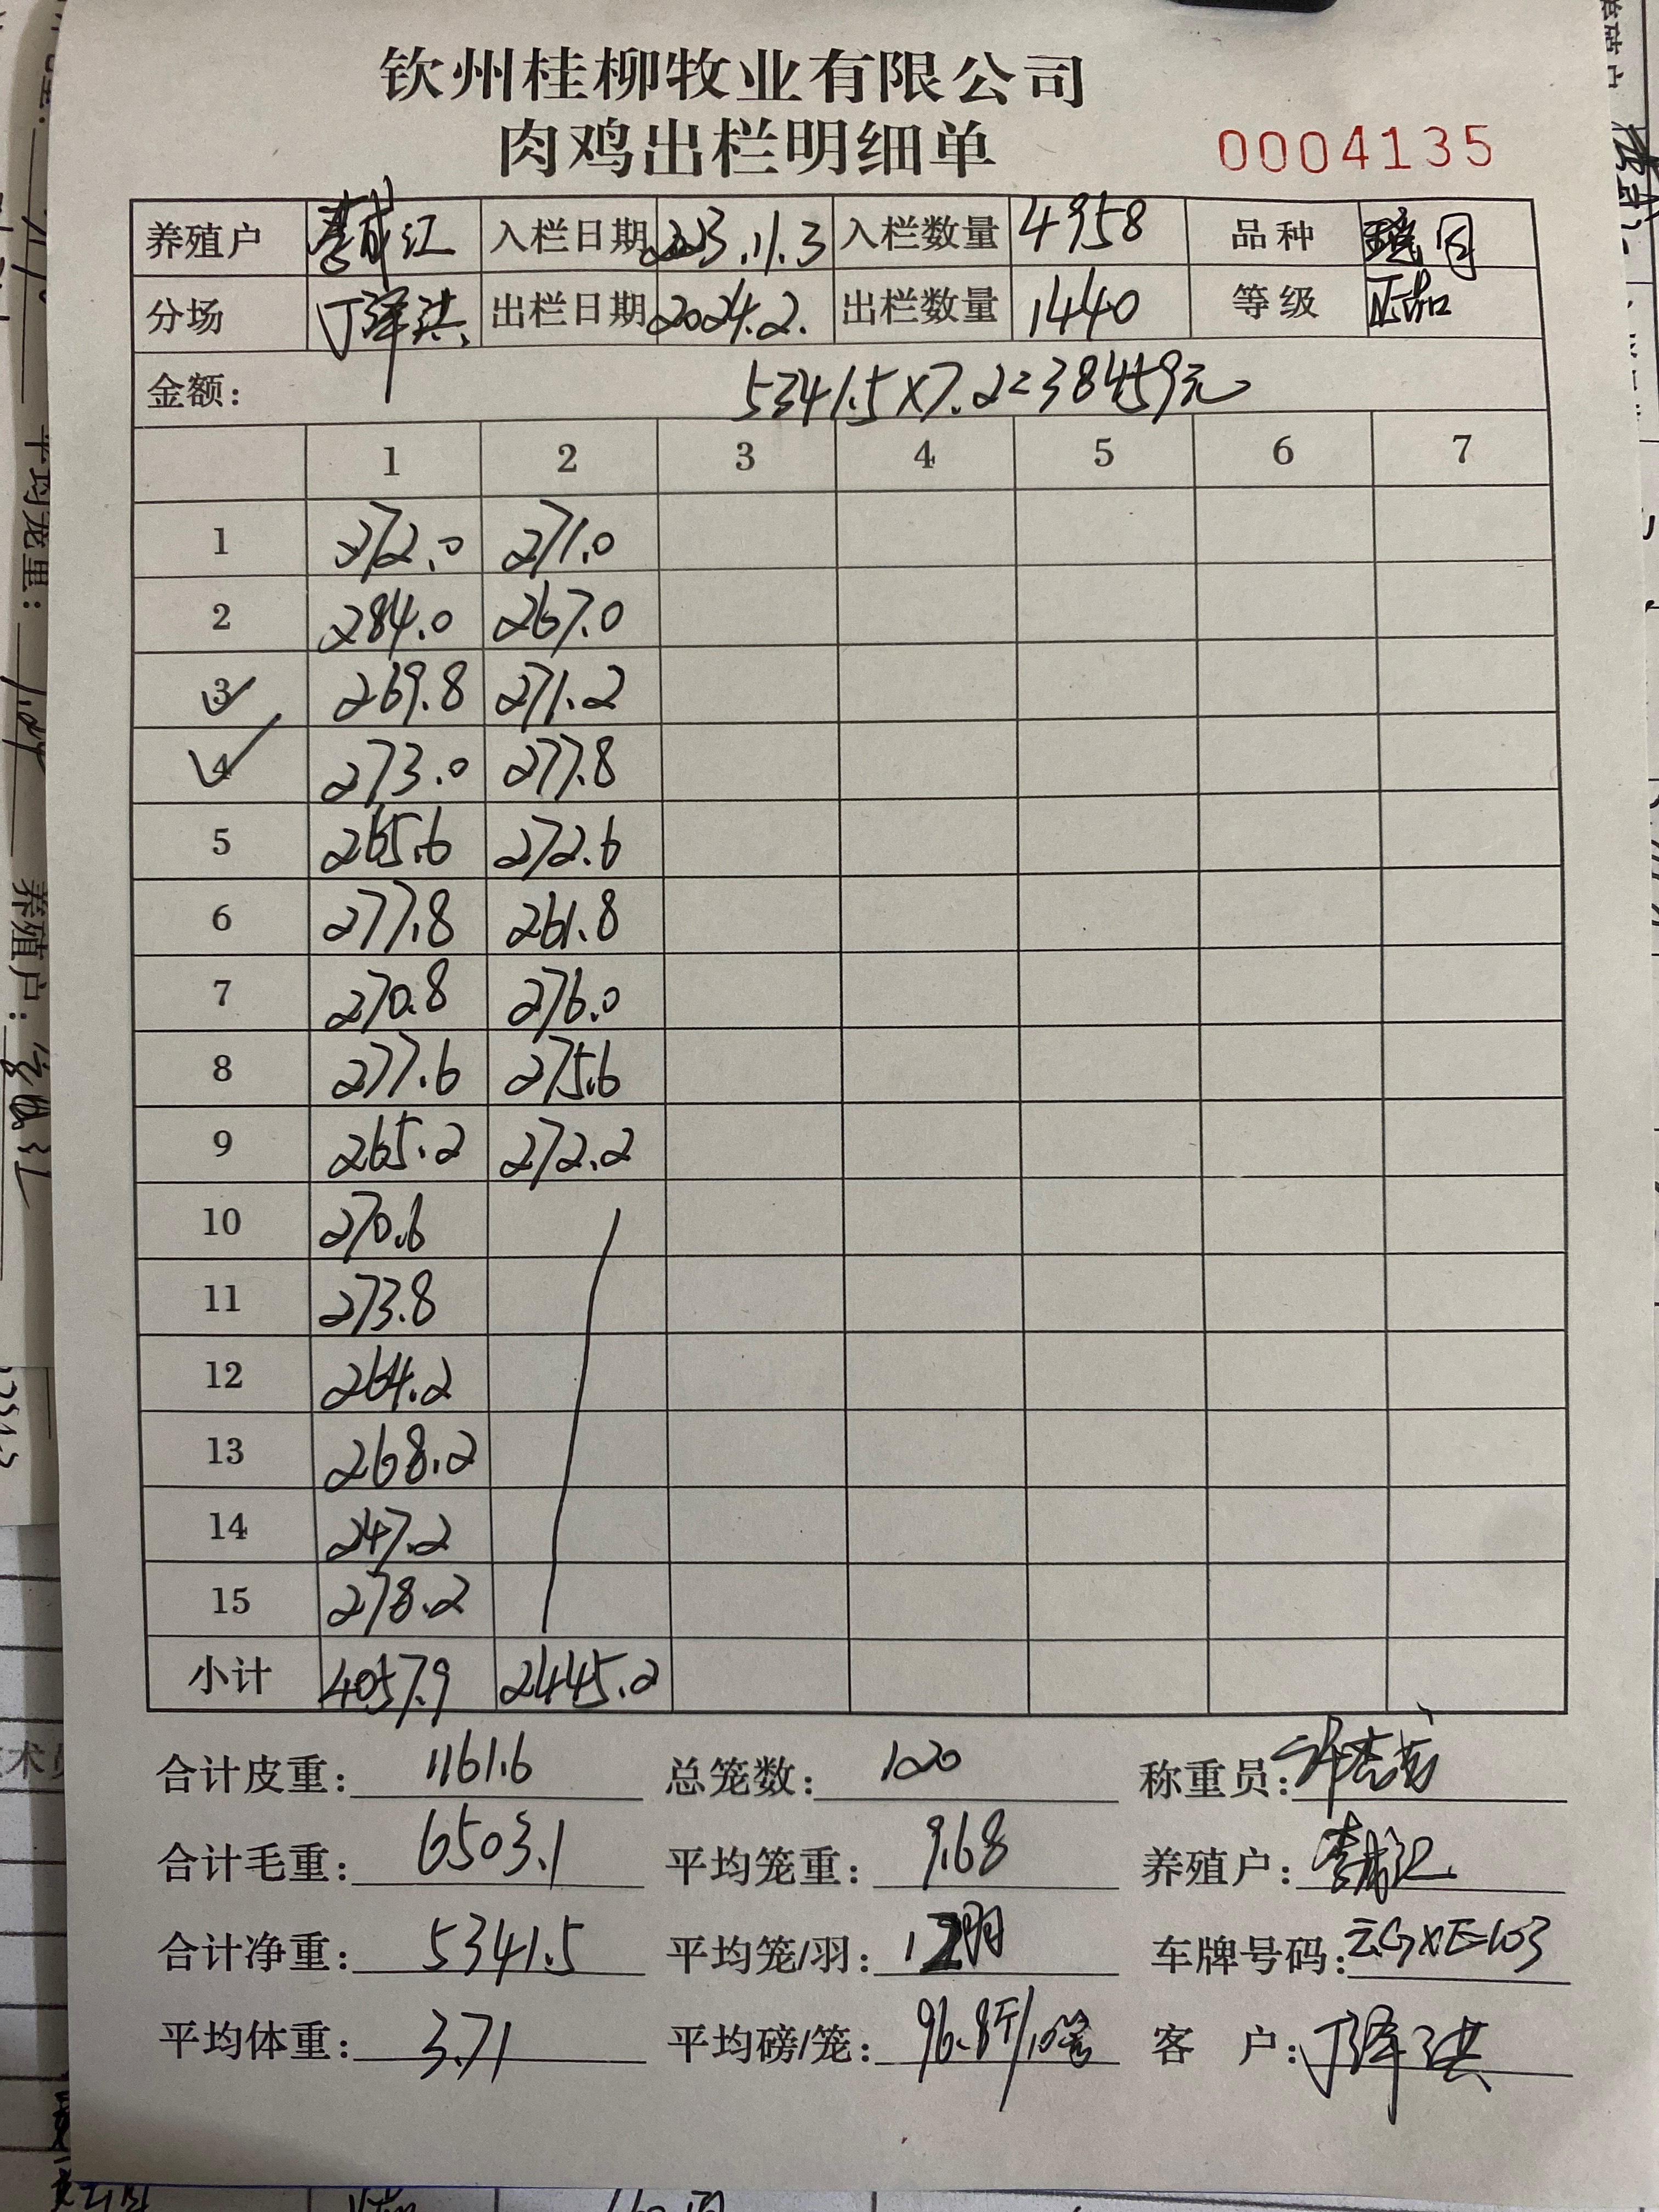 钦州桂柳牧业有限公司
肉鸡出栏明细单 0004135
养殖户 李成江 入栏日期 2023.11.3 入栏数量 4958 品种 瑶月
分场 丁泽洪 出栏日期 2024.2. 出栏数量 1440 等级 正品
金额: 5341.5×7.2=38459元
1 2 3 4 5 6 7
1 272.0 271.0
2 284.0 267.0
3 269.8 271.2
4 273.0 277.8
5 265.6 272.6
6 277.8 261.8
7 270.8 276.0
8 277.6 275.6
9 265.2 272.2
10 270.6
11 273.8
12 264.2
13 268.2
14 247.2
15 278.2
小计 4057.9 2445.2
合计皮重: 1161.6 总笼数: 120 称重员:
合计毛重: 6503.1 平均笼重: 9.68 养殖户: 李成江
合计净重: 5341.5 平均笼/羽: 12羽 车牌号码: 云GXE103
平均体重: 3.71 平均磅/笼: 96.8斤/10笼 客 户: 丁泽洪